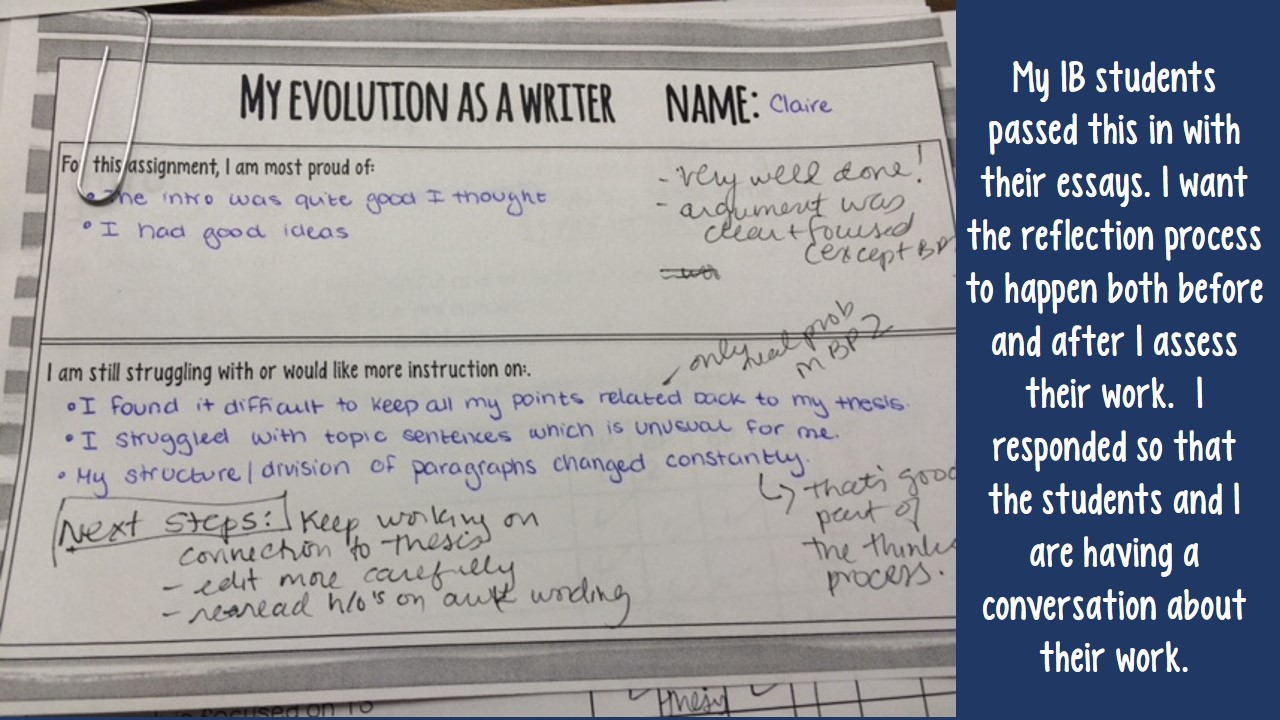 MY EVOLUTION AS A WRITER NAME: Claire
For this assignment, I am most proud of:
• The intro was quite good I thought
• I had good ideas
- very well done!
- argument was
clear + focused
(except BP
only real prob
in BP 2
I am still struggling with or would like more instruction on:.
• I found it difficult to keep all my points related back to my thesis.
• I struggled with topic sentences which is unusual for me.
• My structure / division of paragraphs changed constantly.
↳ that's good
part of
the think
process.
Next Steps: Keep working on
connection to thesis
- edit more carefully
- reread h/o's on awk wording
thesis
My IB students
passed this in with
their essays. I want
the reflection process
to happen both before
and after I assess
their work. I
responded so that
the students and I
are having a
conversation about
their work.